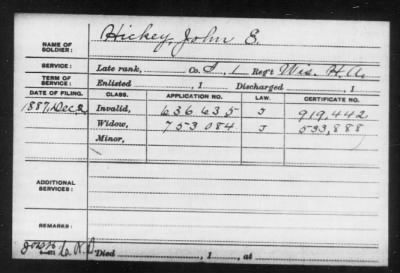 NAME OF SOLDIER: Hickey, John E.
SERVICE: Late rank, Co. I, 1 Reg't Wis. H. A.
TERM OF SERVICE: Enlisted , 1 Discharged , 1
DATE OF FILING. CLASS. APPLICATION NO. LAW. CERTIFICATE NO.
1887, Dec 2 Invalid, 636635 J 919,442
Widow, 753084 J 533,888
Minor,
ADDITIONAL SERVICES:
REMARKS:
Died , 1 , at